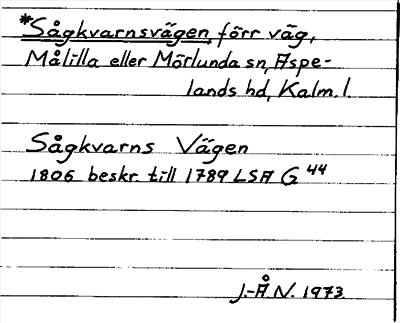 *Sågkvarnsvägen, förr väg,
Målilla eller Mörlunda sn, Aspe-
lands hd, Kalm. l.
Sågkvarns Vägen
1806 beskr. till 1789 LSA G 44
J.-Å N. 1973